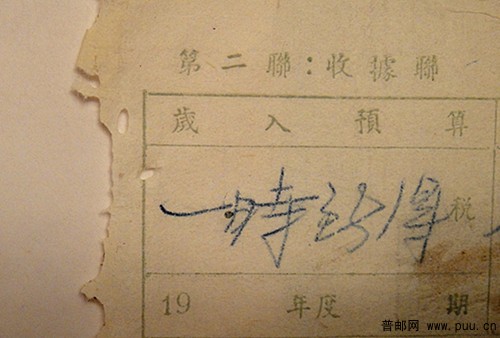 第二聯:收據聯
歲入預算
一时所得税
19 年度 期
普邮网 www.puu.cn